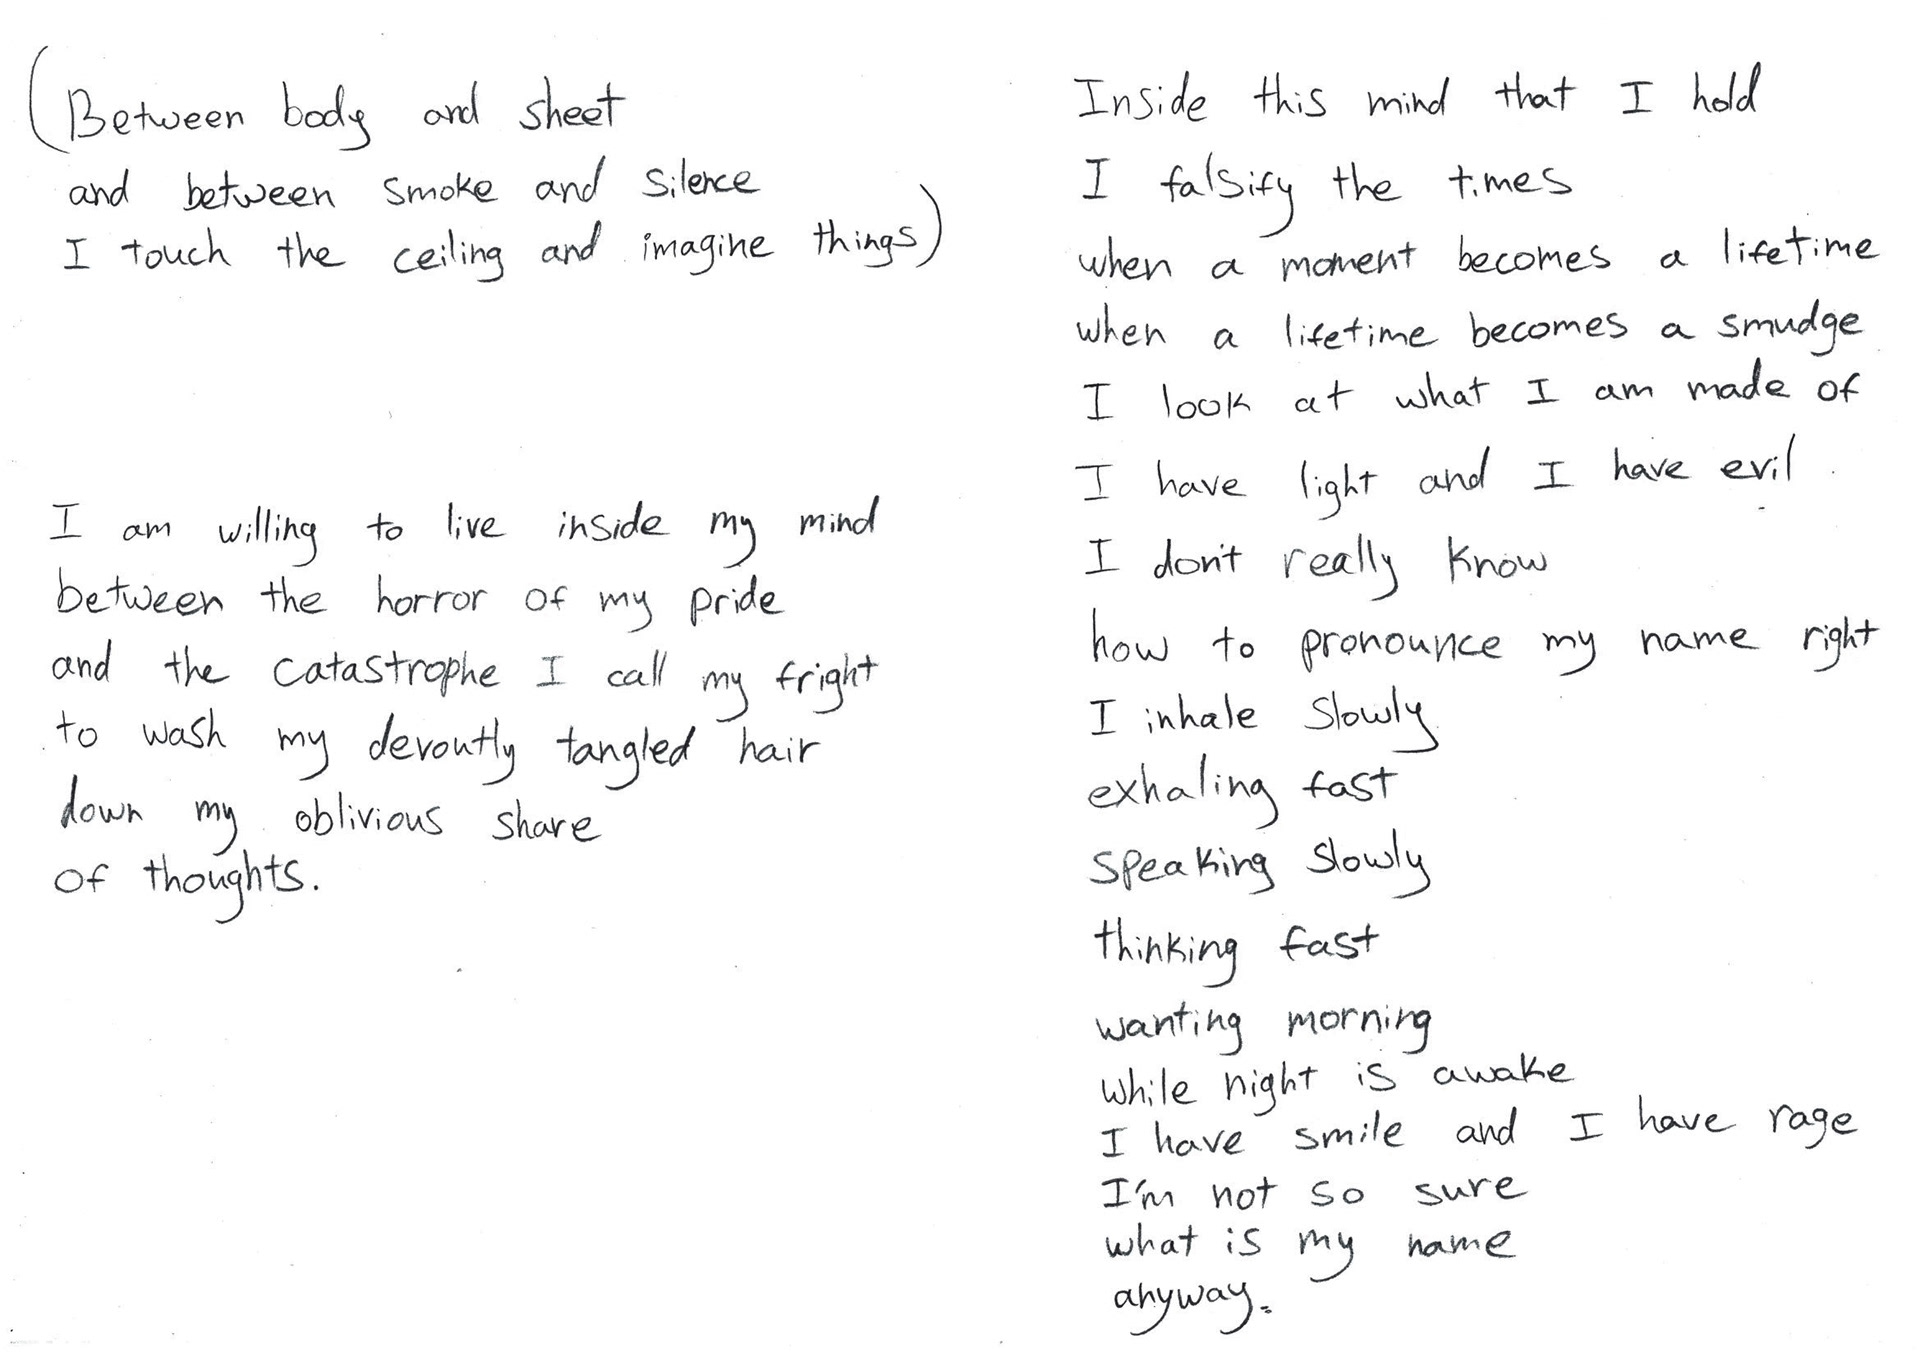 (Between body and sheet
and between smoke and silence
I touch the ceiling and imagine things)
I am willing to live inside my mind
between the horror of my pride
and the catastrophe I call my fright
to wash my devoutly tangled hair
down my oblivious share
of thoughts.
Inside this mind that I hold
I falsify the times
when a moment becomes a lifetime
when a lifetime becomes a smudge
I look at what I am made of
I have light and I have evil
I don't really know
how to pronounce my name right
I inhale slowly
exhaling fast
speaking slowly
thinking fast
wanting morning
while night is awake
I have smile and I have rage
I'm not so sure
what is my name
anyway.